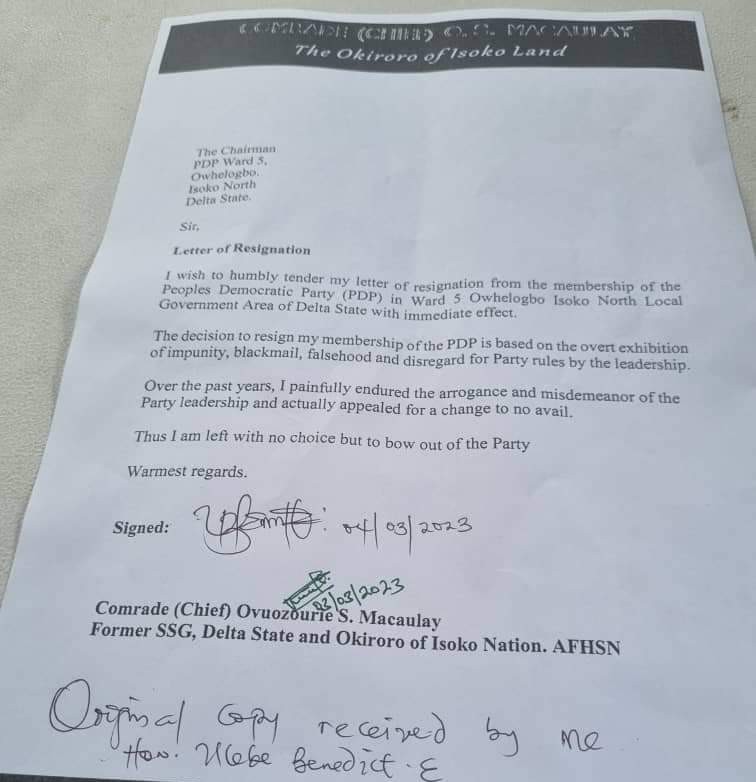 COMRADE (CHIEF) O. S. MACAULAY
The Okiroro of Isoko Land
The Chairman
PDP Ward 5,
Owhelogbo,
Isoko North
Delta State.
Sir,
Letter of Resignation
I wish to humbly tender my letter of resignation from the membership of the
Peoples Democratic Party (PDP) in Ward 5 Owhelogbo Isoko North Local
Government Area of Delta State with immediate effect.
The decision to resign my membership of the PDP is based on the overt exhibition
of impunity, blackmail, falsehood and disregard for Party rules by the leadership.
Over the past years, I painfully endured the arrogance and misdemeanor of the
Party leadership and actually appealed for a change to no avail.
Thus I am left with no choice but to bow out of the Party
Warmest regards.
Signed: 04/03/2023
03/03/2023
Comrade (Chief) Ovuozourie S. Macaulay
Former SSG, Delta State and Okiroro of Isoko Nation. AFHSN
Original Copy received by me
Hon. Benedict . E